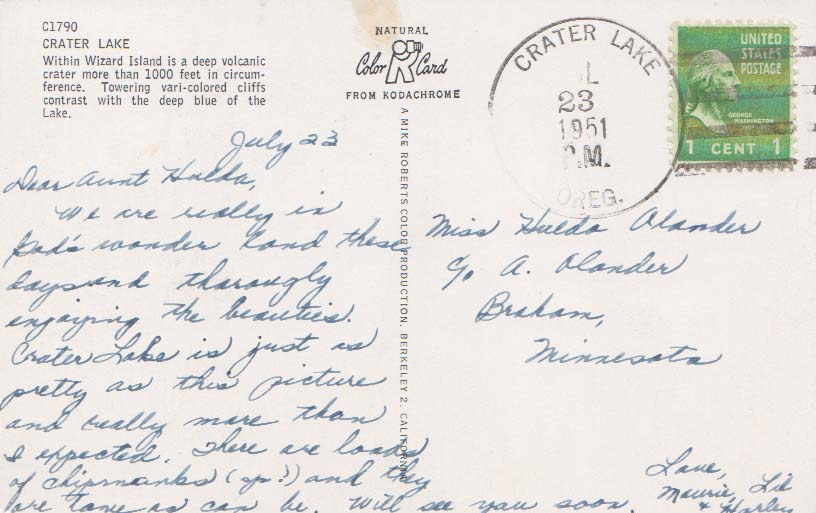 C1790
CRATER LAKE
Within Wizard Island is a deep volcanic
crater more than 1000 feet in circum-
ference. Towering vari-colored cliffs
contrast with the deep blue of the
Lake.
NATURAL
Color Card
FROM KODACHROME
A MIKE ROBERTS COLOR PRODUCTION, BERKELEY 2, CALIFORNIA
CRATER LAKE
23
1951
P.M.
OREG.
UNITED
STATES
POSTAGE
GEORGE
WASHINGTON
1 CENT 1
July 23
Dear Aunt Hulda,
We are really in
God's wonder land these
days and thorougly
enjoying the beauties.
Crater Lake is just as
pretty as this picture
and really more than
I expected. There are loads
of chipmanks (sp?) and they
are tame as can be. Will see you soon.
Love,
Maurie, Lil
+ Harley
Miss Hulda Olander
c/o A. Olander
Braham,
Minnesota